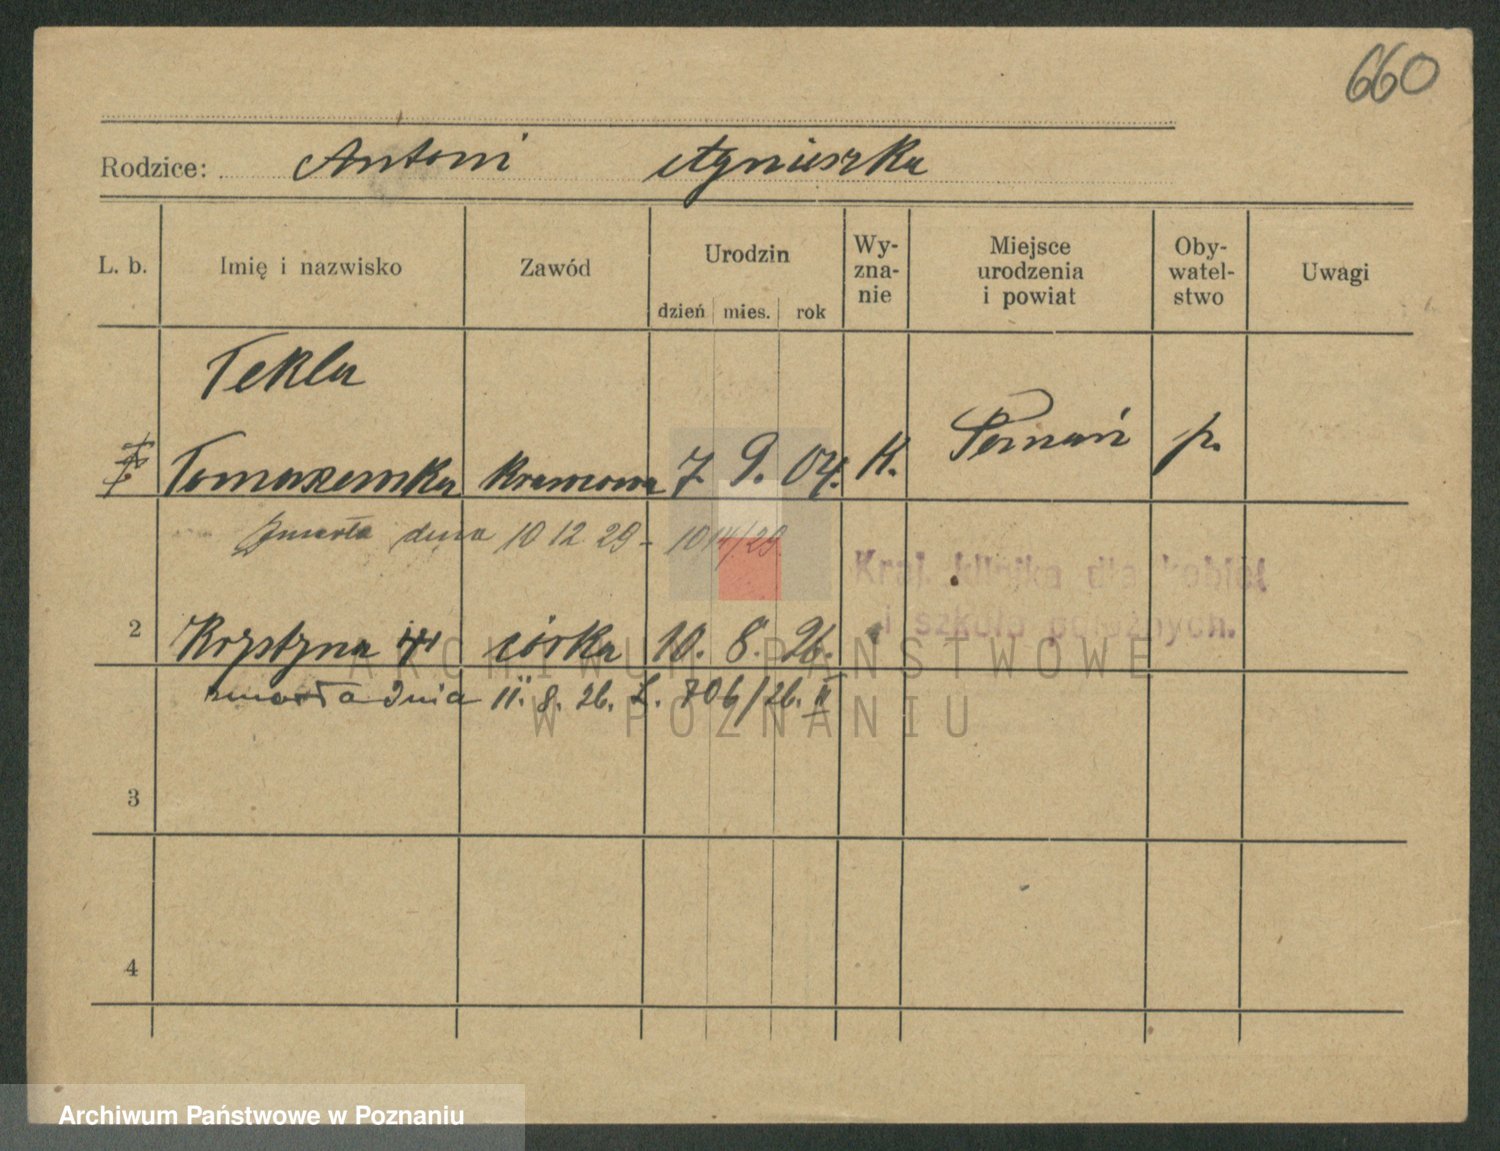 660
Rodzice: Antoni Agnieszka
L. b. Imię i nazwisko Zawód Urodzin Wy-zna-nie Miejsce urodzenia i powiat Oby-watel-stwo Uwagi
dzień mies. rok
Tekla
Tomaszewska krawcowa 7. 9. 04. K. Poznań p.
zmarła dnia 10 12 29 - 1014/29.
Kraj. klinika dla kobiet
i szkoła położnych.
2 Krystyna córka 10. 8. 26.
zmarła dnia 11. 8. 26. L. 706/26. II
ARCHIWUM PAŃSTWOWE
W POZNANIU
3
4
Archiwum Państwowe w Poznaniu